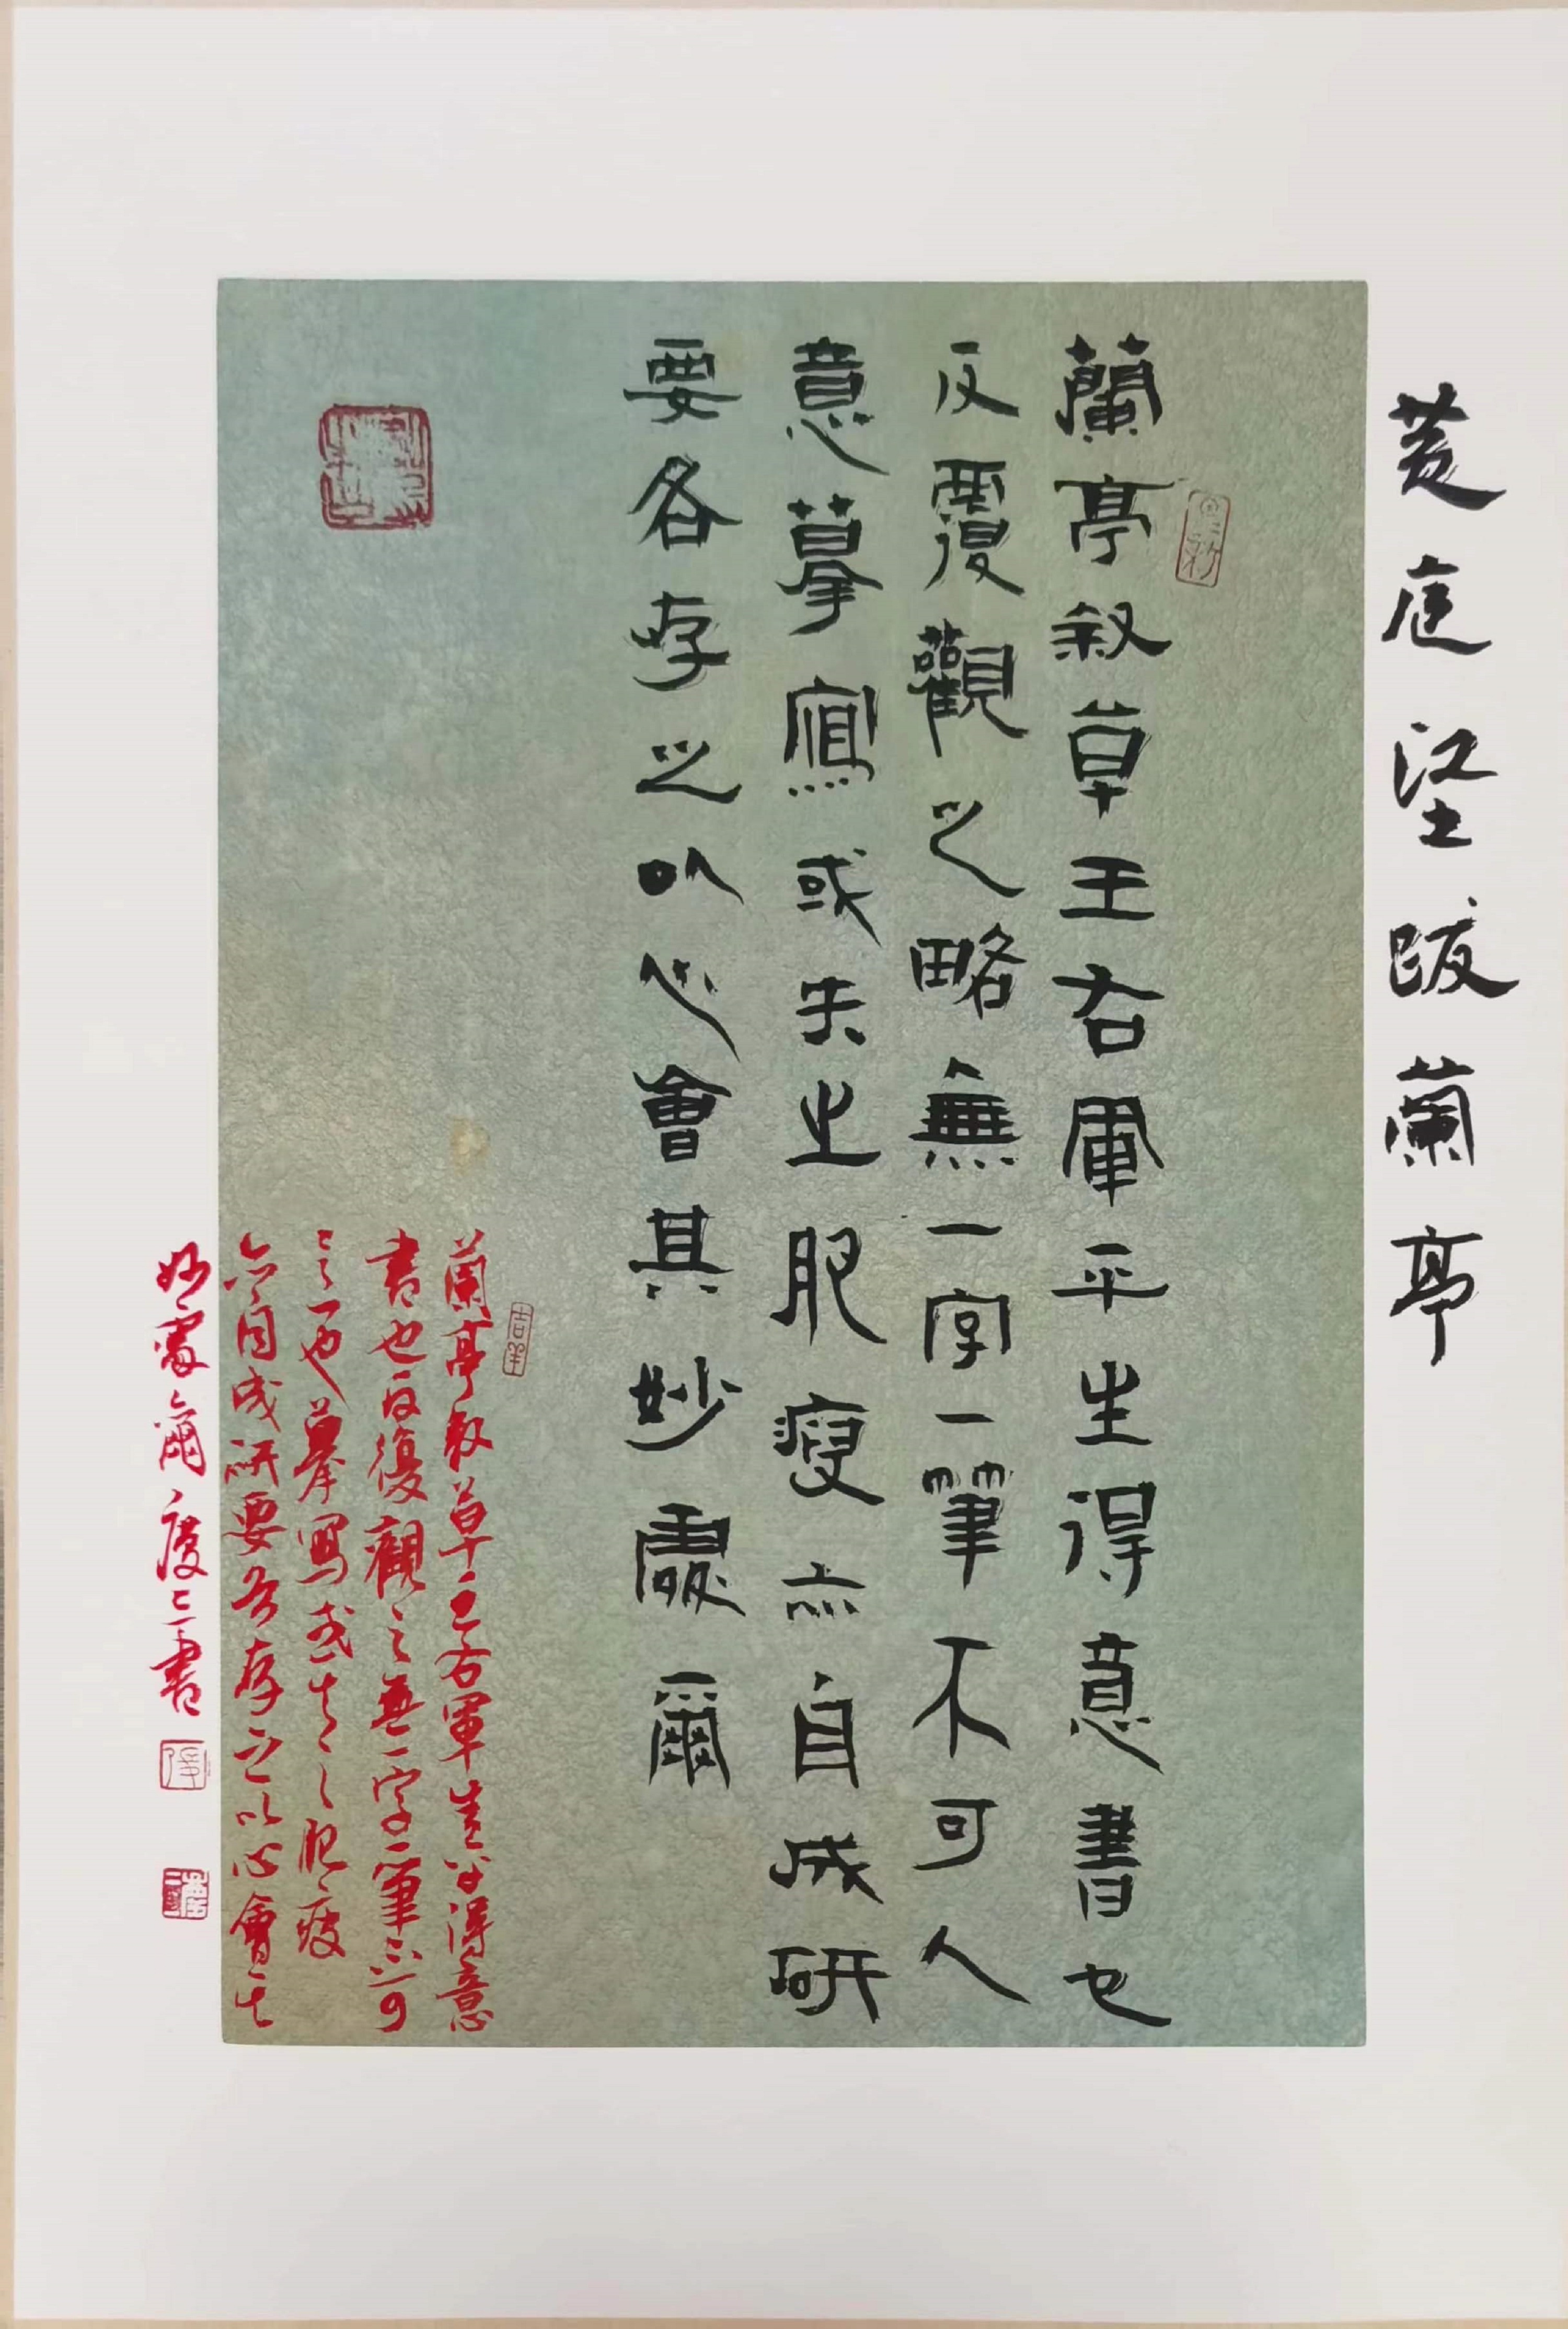 黄庭坚跋蘭亭
蘭亭叙草王右軍平生得意書也
反覆觀之略無一字一筆不可人
意摹寫或失之肥瘦亦自成研
要各存之以心會其妙處爾
蘭亭叙草王右軍生平得意
書也反復觀之無一字一筆不可
摹寫或失之肥瘦
亦自成研要各存之以心會其
妙處爾
書
吉羊